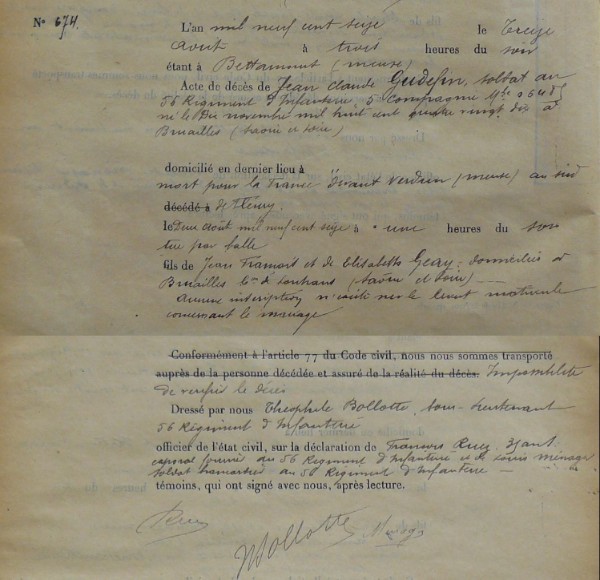 N° 674.
L'an mil neuf cent seize le treize
Août à trois heures du soir
étant à Bettancourt (meuse)
Acte de décès de Jean Claude Gudefin, soldat au
56 Régiment d'Infanterie 5 Compagnie Mle
né le Dix novembre mil huit cent quatre vingt dix à
Bruailles (Saône et Loire)
domicilié en dernier lieu à
mort pour la France devant Verdun (meuse) au sud
décédé à de Fleury.
le Deux Août mil neuf cent seize à une heures du soir
tué par balle
fils de Jean François et de Elisabeth Geay, domiciliés à
Bruailles Con de Louhans (Saône et Loire)
Aucune inscription n'existe sur le livret matricule
concernant le mariage
Conformément à l'article 77 du Code civil, nous nous sommes transporté
auprès de la personne décédée et assuré de la réalité du décès. Impossibilité
de vérifier le décès
Dressé par nous Théophile Bollotte, sous-lieutenant
56 Régiment d'Infanterie
officier de l'état civil, sur la déclaration de François
caporal au 56 Régiment d'Infanterie et de Louis Ménage
soldat brancardier au 56 Régiment d'Infanterie
témoins, qui ont signé avec nous, après lecture.
Bollotte